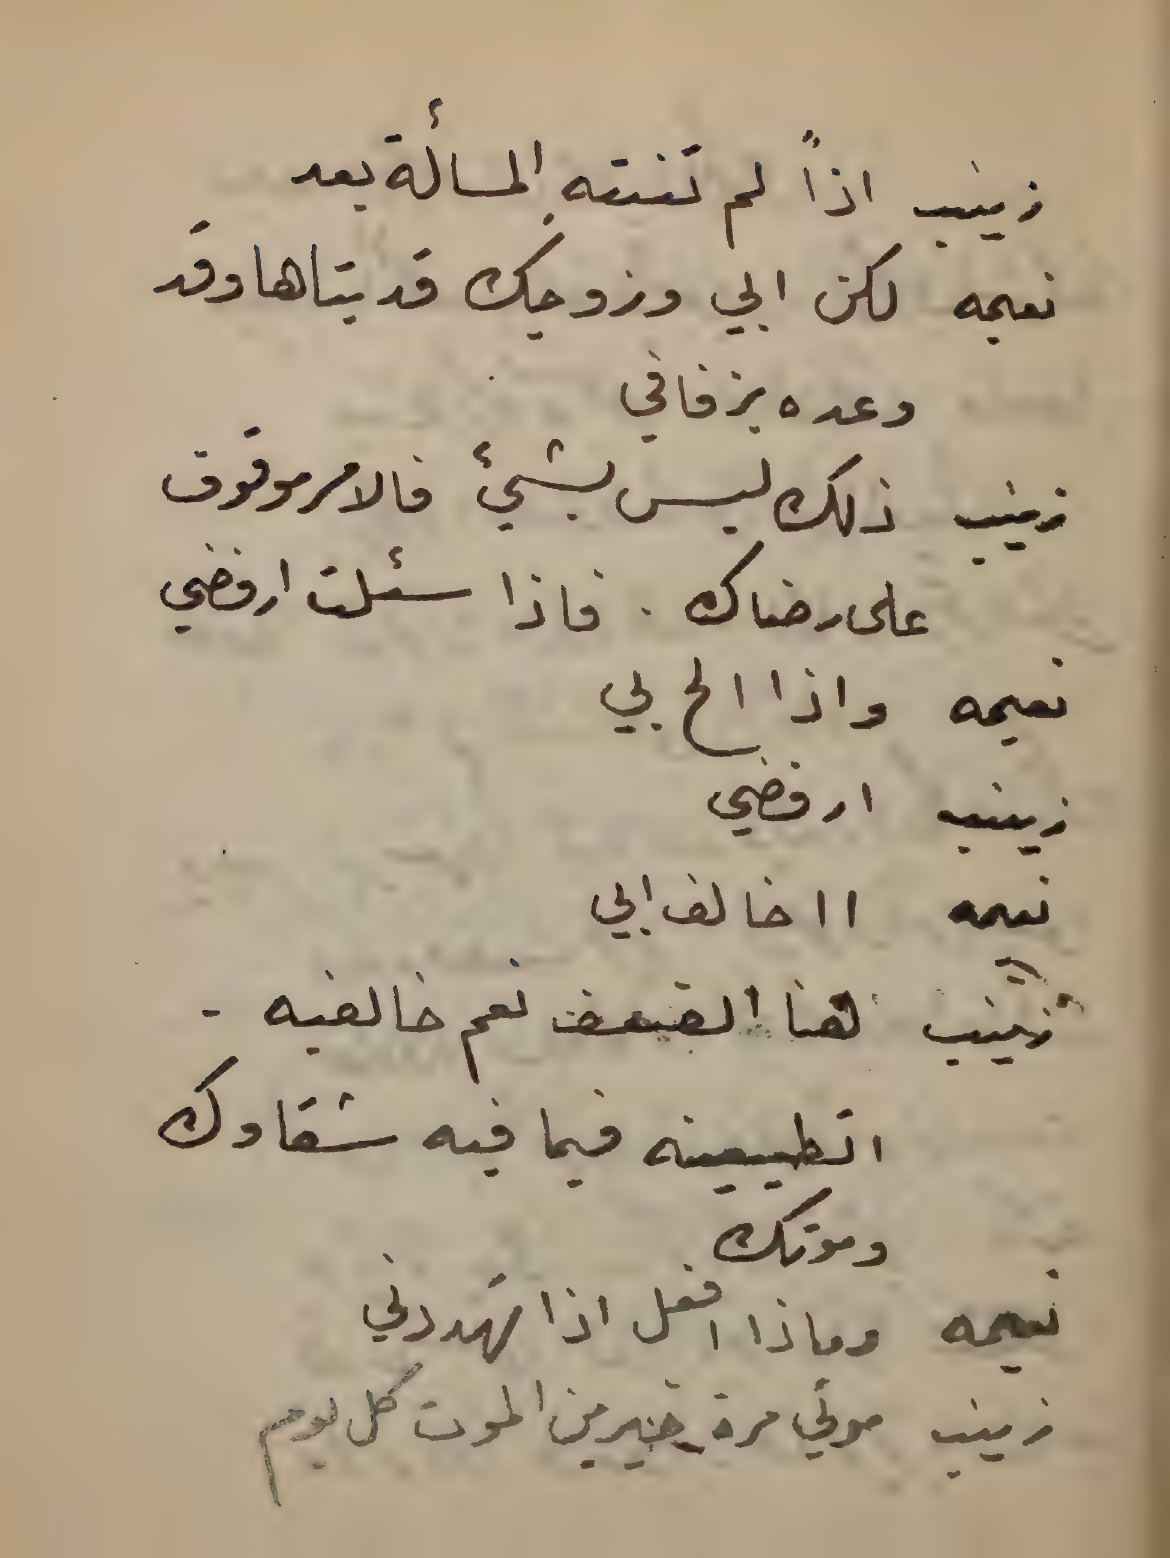 زينب اذاً لم تنته المسألة بعد
نعيمه لكن ابي وزوجك قد بتاها وقد
وعده بزفافي
زينب ذلك ليس بشيئ فالامر موقوف
على رضاك . فاذا سئلت ارفضي
نعيمه واذا الح بي
زينب ارفضي
نعيمه ااخالف ابي
زينب هنا الضعف نعم خالفيه -
اتطيعينه فيما فيه شقاوك
وموتك
نعيمه وماذا افعل اذا تهددني
زينب موتي مرة خير من الموت كل يوم